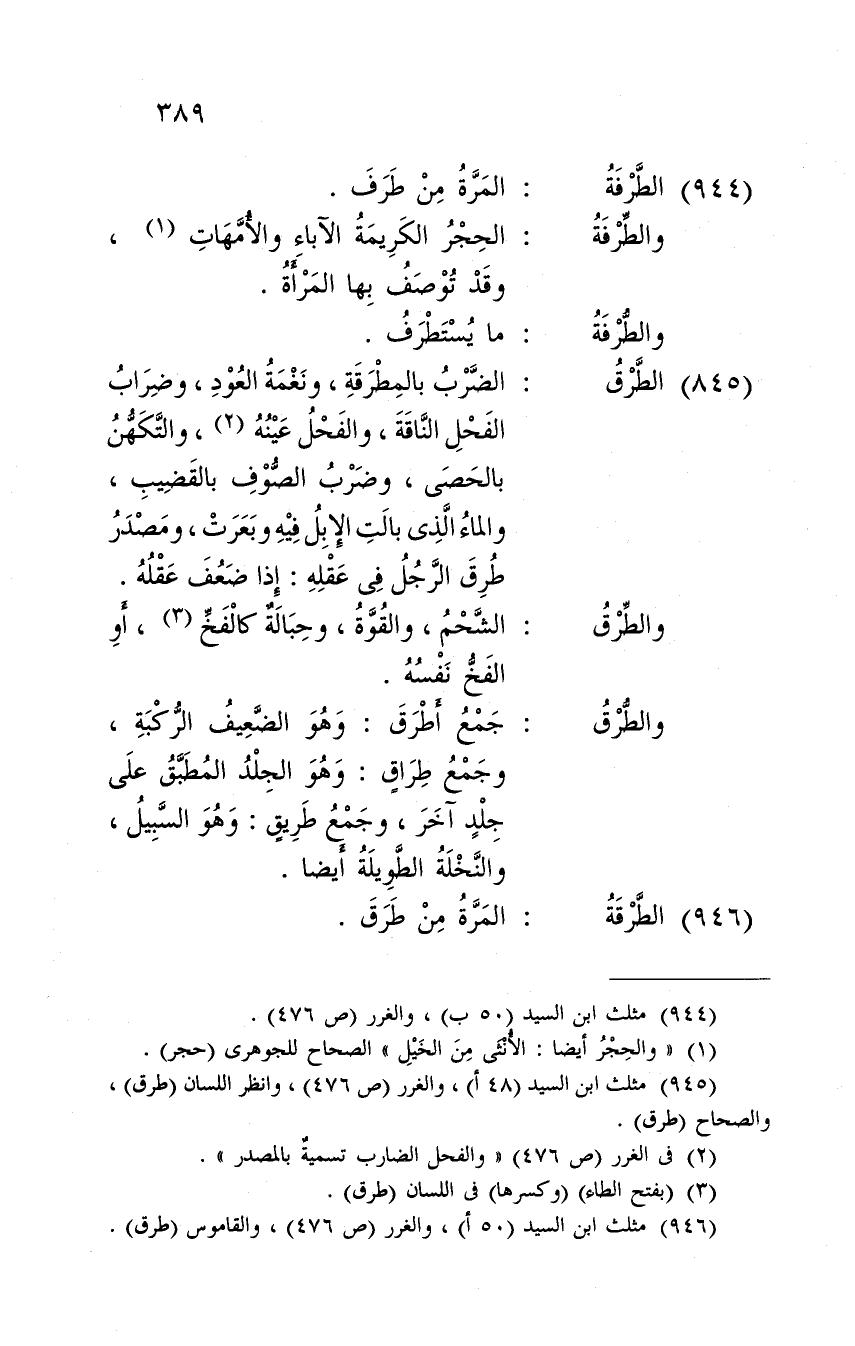 ٣٨٩
(٩٤٤) الطَّرْفَةُ : المَرَّةُ مِنْ طَرَفَ .
والطِّرْفَةُ : الحِجْرُ الكَرِيمَةُ الآباءِ والأُمَّهَاتِ (١) ،
وقَدْ تُوْصَفُ بِها المَرْأَةُ .
والطُّرْفَةُ : ما يُسْتَطْرَفُ .
(٨٤٥) الطَّرْقُ : الضَّرْبُ بالمِطْرَقَةِ ، ونَغْمَةُ العُوْدِ ، وضِرَابُ
الفَحْلِ النَّاقَةَ ، والفَحْلُ عَيْنُهُ (٢) ، والتَّكَهُّنُ
بالحَصَى ، وضَرْبُ الصُّوْفِ بالقَضِيبِ ،
والماءُ الَّذِى بالَتِ الإِبِلُ فِيْهِ وبَعَرَتْ ، ومَصْدَرُ
طُرِقَ الرَّجُلُ فِى عَقْلِهِ : إِذا ضَعُفَ عَقْلُهُ .
والطِّرْقُ : الشَّحْمُ ، والقُوَّةُ ، وحِبَالَةٌ كالْفَخِّ (٣) ، أَوِ
الفَخُّ نَفْسُهُ .
والطُّرْقُ : جَمْعُ أَطْرَقَ : وَهُوَ الضَّعِيفُ الرُّكْبَةِ ،
وجَمْعُ طِرَاقٍ : وَهُوَ الجِلْدُ المُطَبَّقُ علَى
جِلْدٍ آخَرَ ، وجَمْعُ طَرِيقٍ : وَهُوَ السَّبِيلُ ،
والنَّخْلَةُ الطَّوِيلَةُ أَيضا .
(٩٤٦) الطَّرْقَةُ : المَرَّةُ مِنْ طَرَقَ .
(٩٤٤) مثلث ابن السيد (٥٠ ب) ، والغرر (ص ٤٧٦) .
(١) « والحِجْرُ أيضا : الأُنْثَى مِنَ الخَيْلِ » الصحاح للجوهرى (حجر) .
(٩٤٥) مثلث ابن السيد (٤٨ أ) ، والغرر (ص ٤٧٦) ، وانظر اللسان (طرق) ،
والصحاح (طرق) .
(٢) فى الغرر (ص ٤٧٦) « والفحل الضارب تسميةٌ بالمصدر » .
(٣) (بفتح الطاء) (وكسرها) فى اللسان (طرق) .
(٩٤٦) مثلث ابن السيد (٥٠ أ) ، والغرر (ص ٤٧٦) ، والقاموس (طرق) .